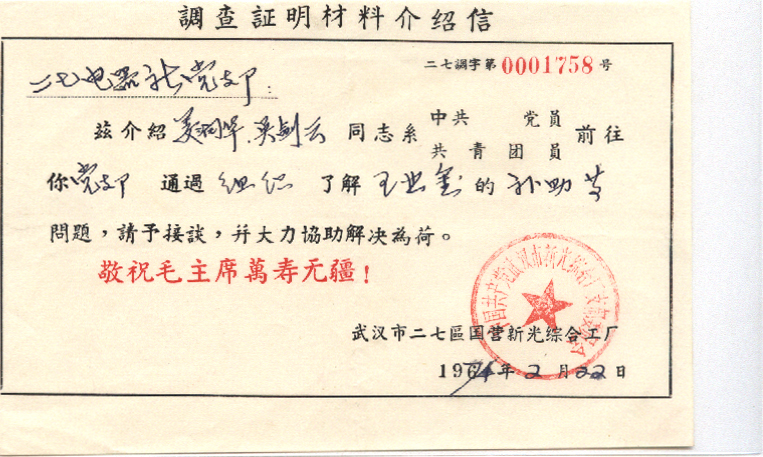 調查証明材料介绍信
二七調字第0001758号
二七电器社党支部:
兹介紹 同志系 中共 党员 前往
共青团员
你党支部 通過 组织 了解 王 的 补助等
問題，請予接談，幷大力協助解决為荷。
敬祝毛主席萬寿无疆！
武汉市二七區国营新光综合工厂
197 年2月22日